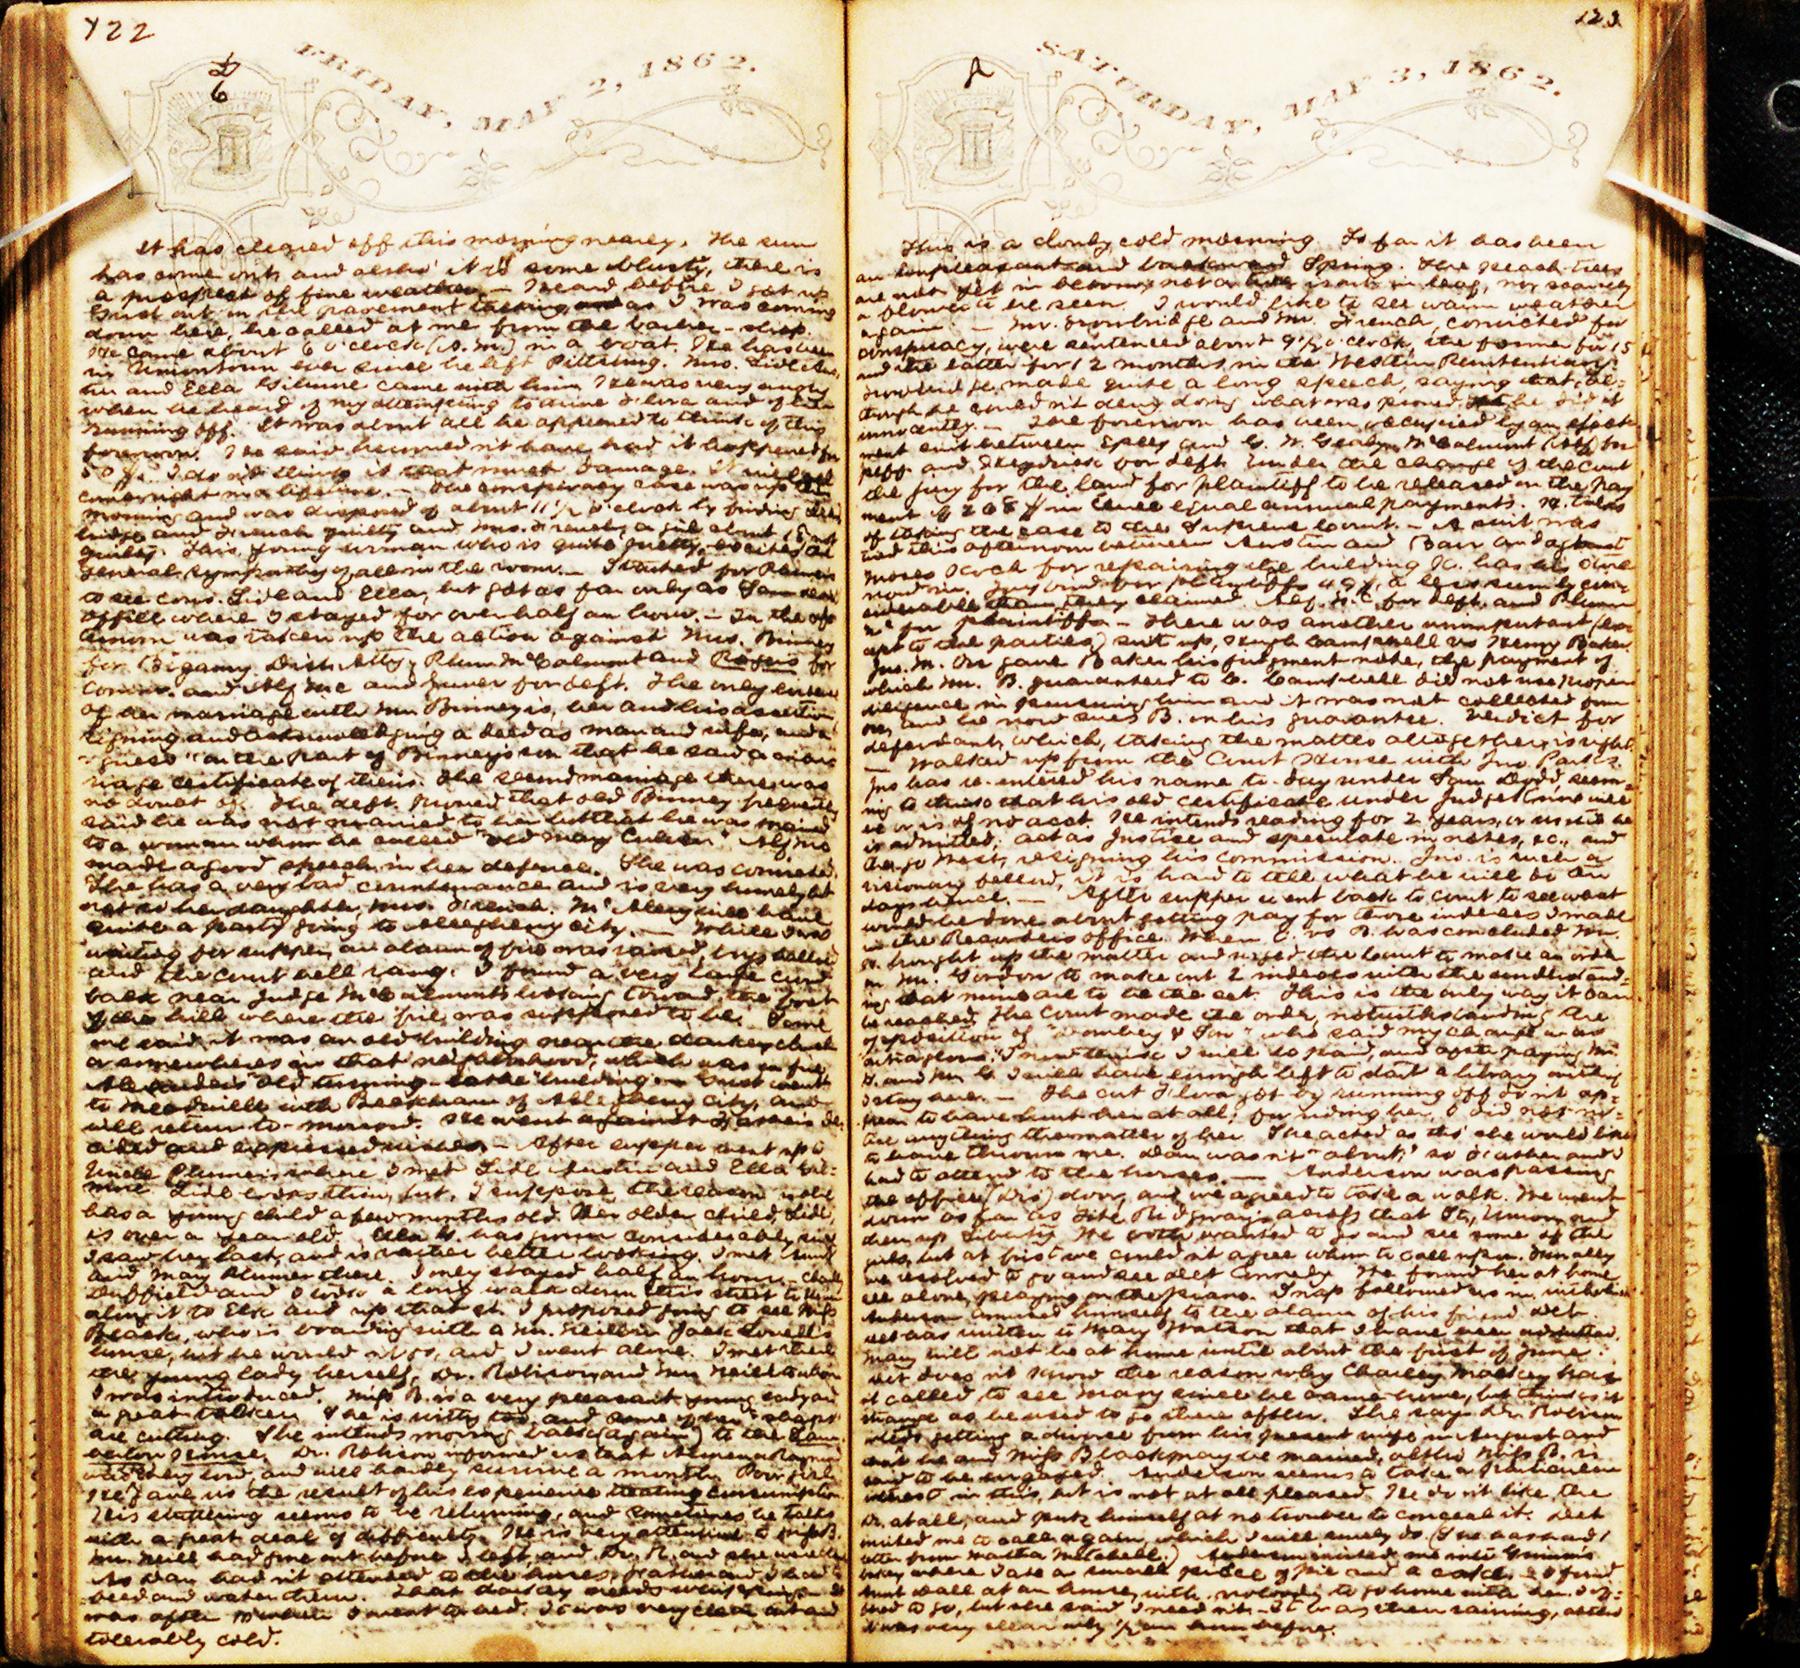 122
FRIDAY, MAY 2, 1862.
It has cleared off this morning nearly. The sun
has come out and altho' it is some blusty, there is
a prospect of fine weather. — Heard before I got up
out on the pavement talking and as I was coming
down here, he called at me from the barber-shop.
He came about 6 o'clock (A.M.) in a boat. He has been
in Uniontown ever since he left Pittsburg. Mrs. Lide
and Ella Gilmore came with him. He was very angry
when he heard of my attempting to and of
running off. It was about all he appeared to think of this
forenoon. He said he would n't have had it happened for
50 $. I do n't think it that much damage. It will
come right in a lifetime. — The conspiracy case was up
morning and was disposed of about 11 1/2 o'clock by finding
and French guilty and Mrs. French, a girl about 18, not
guilty. This young woman who is quite pretty, excites the
general sympathy of all in the room. — Started for
to see cous. Lide and Ella, but got as far only as Sam
office where I stayed for over half an hour. — In the after
noon was taken up the action against Mrs. Binney
for Bigamy. Dist. Atty, Plumer McCalmont and Rogers for
Comm. and Alf Mc and for deft. The only
of her marriage with Mr Binney is, her and his assertion
signing and acknowledging a deed as man and wife, and a
on the part of Binney's son that he said a mar
riage certificate of theirs. The second marriage there was
no doubt of. The deft. proved that old Binney frequently
said he was not married to her but that he was married
to a woman whom he called "old Mary". Alf Mc
made a good speech in her defence. She was convicted.
She has a very bad countenance and is very homely but
not so her daughter, Mrs. French. will have
quite a party going to Allegheny city. — While I was
waiting for supper, an alarm of fire was raised, boys hallooed
and the court bell rang. I found a very large crowd
back near Judge McCalmont's looking toward the foot
of the hill where the fire was supposed to be. Some
one said it was an old building near the
or somewheres in that neighborhood, which was on fire
old building — went
to Meadville with Beekman of Allegheny City, and
will return to-morrow. He went against
cided and expressed wishes. — After supper went up to
Uncle Plumer's where I met Lide Austin and Ella Gil-
more. Lide looks thin, but, I suppose, the reason is she
has a young child a few months old. Her older child, Lide,
is over a year old. Ella G. has grown considerably since
I saw her last, and is rather better looking. I met Aunt
and Mary Plumer there. I only stayed half an hour. — Charley
Duffield and I took a long walk down this street to
along it to Elk and up that st. I proposed going to see Miss
Black, who is boarding with a Mr. Neill in Jack Lovell's
house, but he would n't go, and I went alone. I met there
the young lady herself, Dr. Robison and Mr. Neill to whom
I was introduced. Miss B. is a very pleasant young lady and
a great talker. She is witty too, and some of her
are cutting. She intends moving back (again) to the
House. Dr. Robison informed us that
was very low, and will hardly survive a month. Poor girl.
He gave us the result of his experience treating consumption.
His stuttering seems to be returning, and sometimes he talks
with a great deal of difficulty. He is very attentive to Miss B.
Mr. Neill had gone out before I left, and Dr. R. and she were
As Dan had n't attended to the horses, father and I had to
feed and water them. That
was after I went to bed. It was very clear out and
tolerably cold.
123
SATURDAY, MAY 3, 1862.
This is a cloudy cold morning. So far it has been
an unpleasant and backward Spring. The peach trees
are not yet in blossom, not a tree is out in leaf, nor scarcely
a flower to be seen. I would like to see warm weather
again. — Mr. Trowbridge and Mr. French, convicted for
conspiracy, were sentenced about 9 1/2 o'clock, the former for 15
and the latter for 12 months, in the Western Penitentiary.
Trowbridge made quite a long speech, saying that, al-
though he could n't deny doing what was proved, he did it
innocently. — The forenoon has been occupied by an eject
ment suit between and G. W. McCalmont for
plff. and for deft. Under the charge of the Court
the jury for the land for plaintiff to be released on the pay
ment of 208 $ in three equal annual payments. H. talks
of taking the case to the Supreme Court. — A suit was
tried this afternoon between Austin and Barr and against
Moses for repairing the building he has his store
now in. Jury find for plaintiffs 49 $, a less sum by con-
siderable than they claimed. Alf. Mc. C. for deft. and Plumer
for plaintiffs — There was another unimportant (ex-
cept to the parties) suit up, Hugh Campbell vs Henry Baker.
Jno. M. Orr gave Baker his judgment note, the payment of
which Mr. B. guaranteed to C. Campbell did not use proper
diligence in pursuing him and it was not collected from
him, and he now sues B. on his guarantee. Verdict for
defendant, which, taking the matter altogether, is right.
— Walked up from the Court House with Jno. Parks.
Jno has re-entered his name to-day under Sam Dodd, seem-
ing to think that his old certificate under Judge were
or is of no acct. He intends reading for 2 years, or until he
is admitted; act as Justice and speculate in notes, &c., and
then go West, resigning his commission. Jno. is such a
visionary fellow, it is hard to tell what he will do ten
days hence. — After supper went back to court to see what
would be done about getting pay for those indexes I made
in the Recorder's office. When C. vs B. was concluded Mr.
brought up the matter and urged the Court to make an order
on Mr. Gordon to make out 2 indexes with the understand-
ing that mine are to be the set. This is the only way it can
be reached. The Court made the order, notwithstanding the
opposition of "Dombey & Son" who said my charge was
outrageous. I now think I will be paid, and after paying Mr.
D. and Mr G. I will have enough left to start a library
I stay here. — The cut got by running off do n't ap-
pear to have hurt her at all; for riding her, I did not no-
tice anything the matter of her. She acted as tho' she would like
to have thrown me. Dan was n't "about" so father and I
had to attend to the horses. — Anderson was passing
the office (Dr's) door, and we agreed to take a walk. We went
down as far as Ridgway's across that St, Union and
then up Liberty. We both wanted to go and see some of the
girls, but at first we could n't agree whom to call upon. Finally
we resolved to go and see Det Connely. We found her at home
all alone, playing on the piano. Snap followed us in, which
Anderson amused himself to the alarm of his friend Det.
Det has written to Mary Watson that I have been admitted.
Mary will not be at home until about the first of June.
Det does n't know the reason why Charley Mackey has
n't called to see Mary since he came home, but thinks it
strange as he used to go there often. She says Dr. Robison
getting a divorce from his present wife in August and
that he and Miss Black may be married, altho Miss B. is
said to be engaged. Anderson seems to take a particular
interest in this, but is not at all pleased. He do n't like the
Dr. at all, and puts himself at no trouble to conceal it. Det
invited me to call again, which I will surely do. (She has had a
letter from Martha Mitchell.) Anderson invited me into
bakery where I ate a small piece of pie and a cake. — I found
Aunt at our house, with nobody to go home with her. I of-
fered to go, but she said I need n't. — It was then raining, altho
it was very clear only 1/2 an hour before.